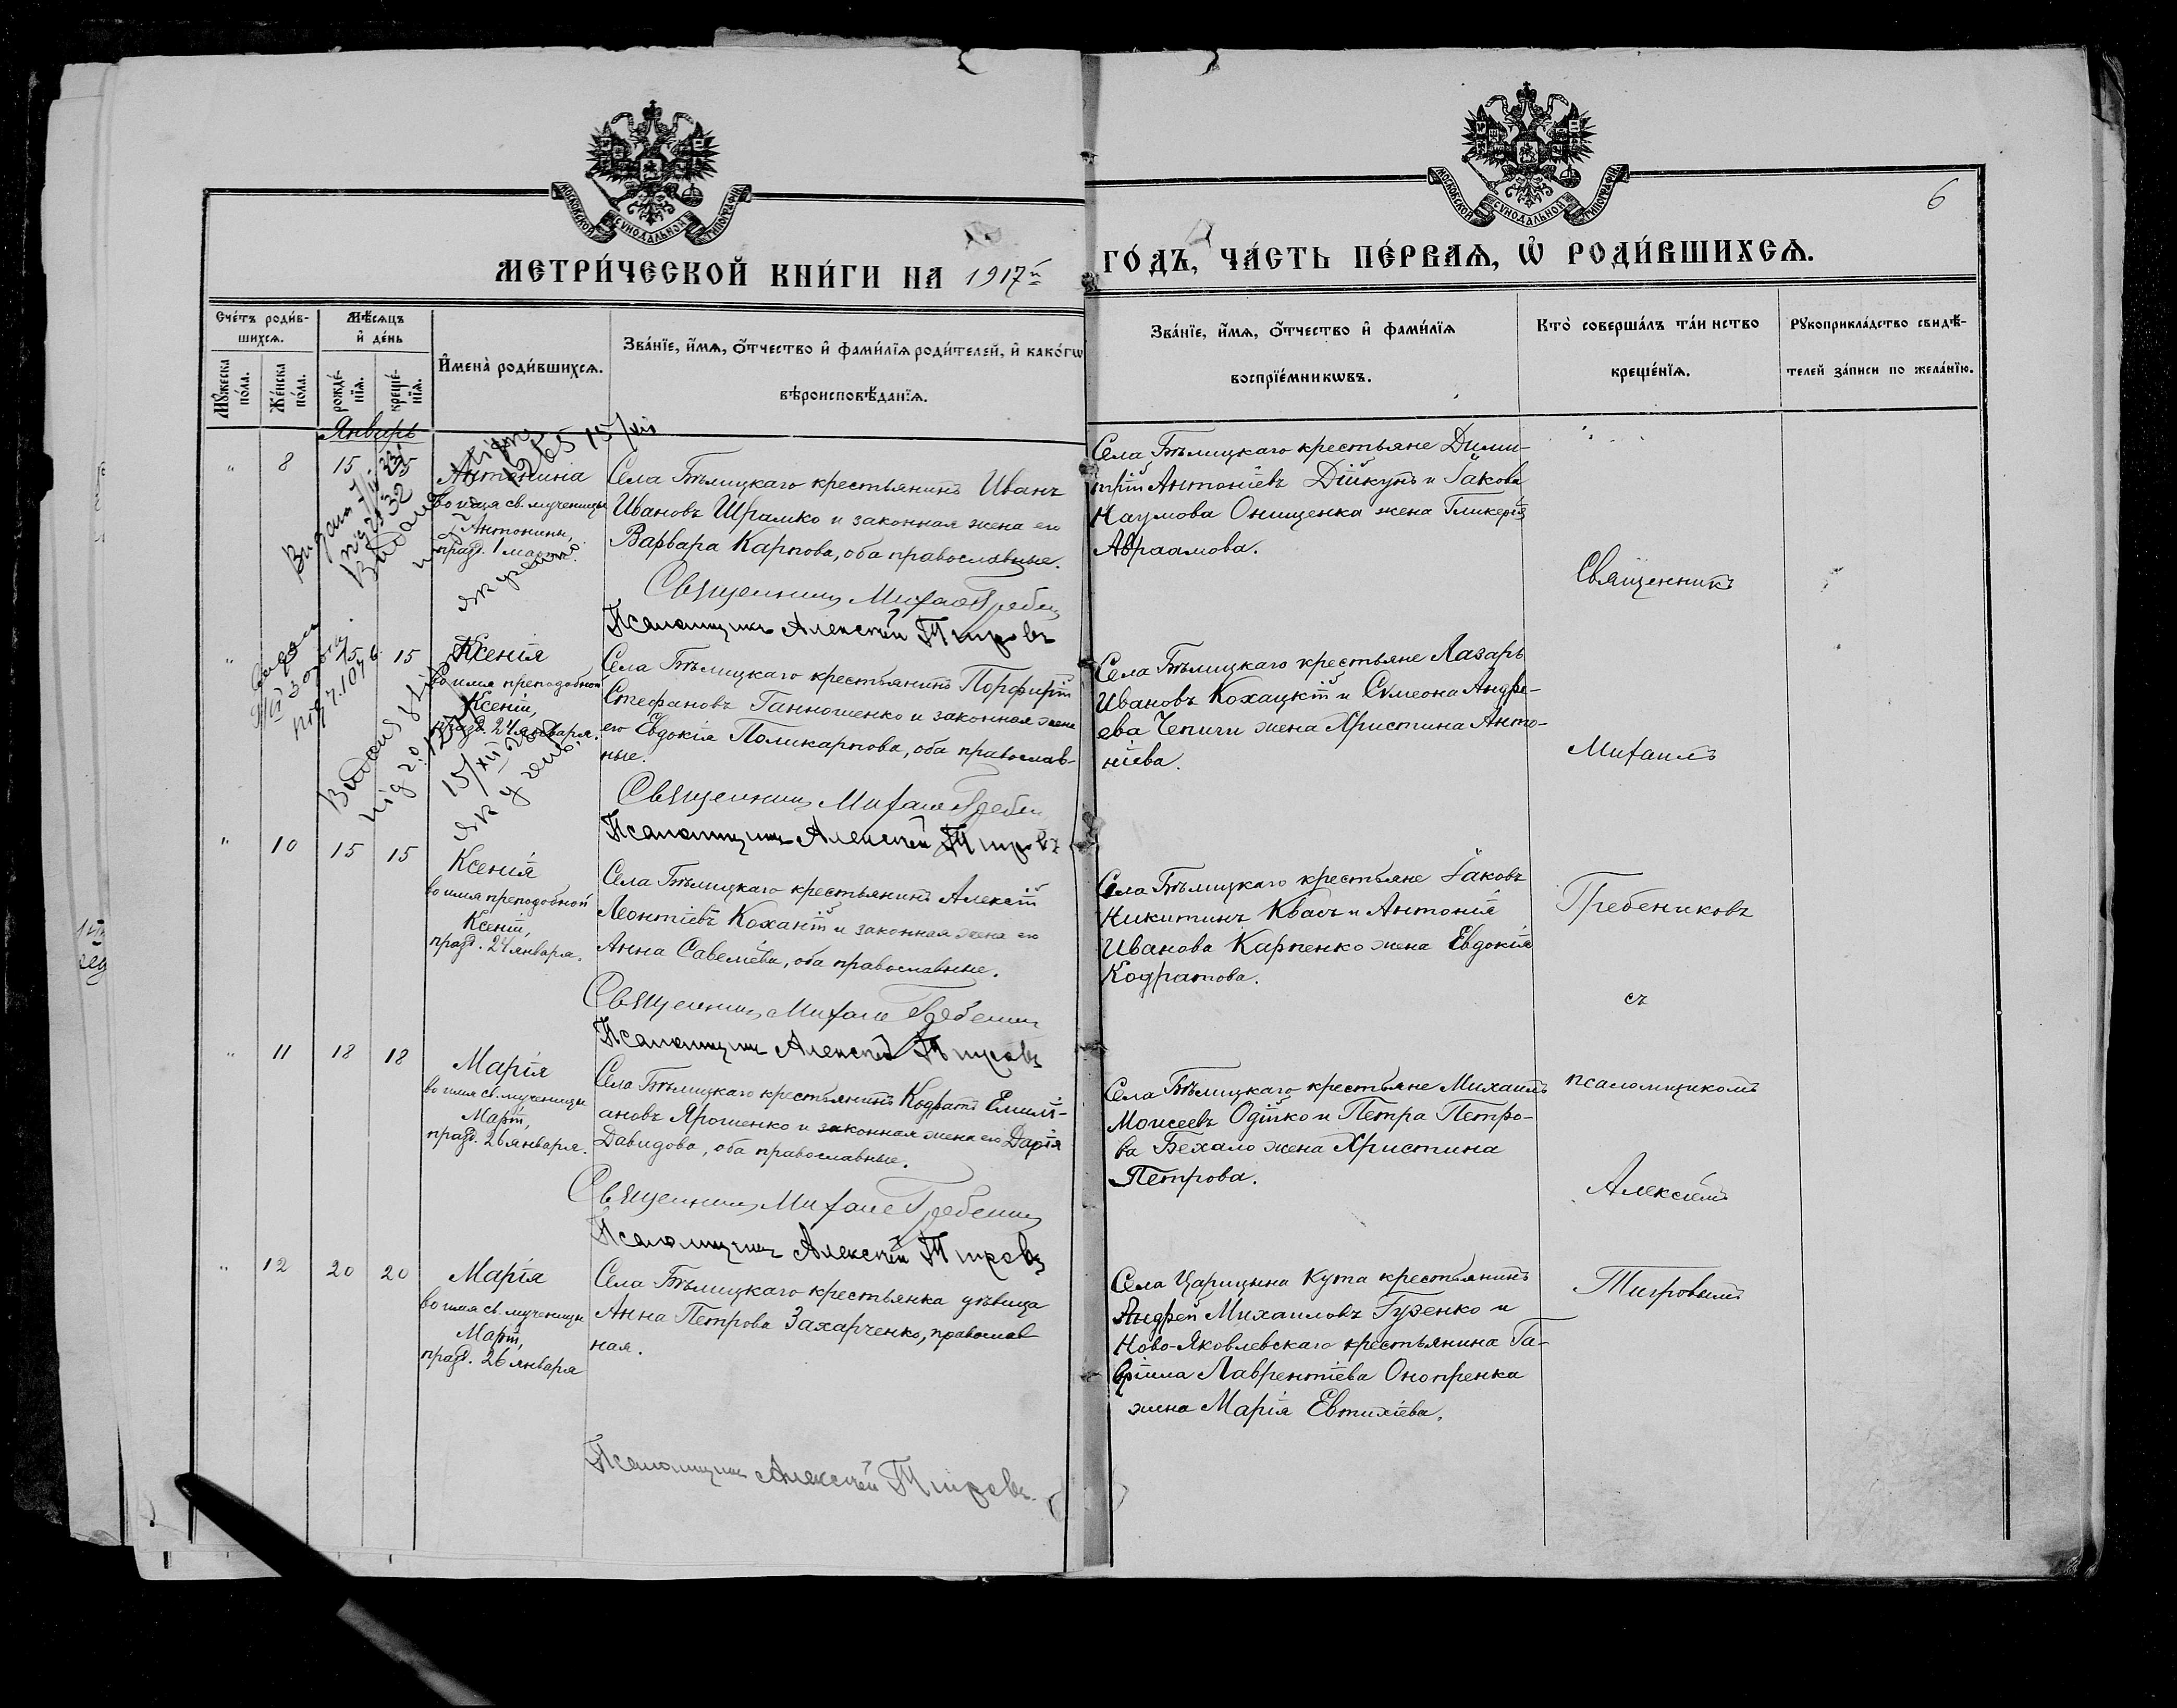 6
МЕТРИ́ЧЕСКОЙ КНИ́ГИ НА 1917й ГО́ДЪ, ЧА́СТЬ ПЕ́РВАѦ, Ѡ РОДИ́ВШИХСѦ.
Сче́тъ роди́в-
шихсѧ.
Мѣ́сѧцъ
и҆ де́нь
И҆мена̀ роди́вшихсѧ.
Зва́нїе, и҆́мѧ, ѻ҆́тчество и҆ фамѝлїѧ роди́телей, и҆ како́гѡ
вѣроисповѣ́данїѧ.
Зва́нїе, и҆́мѧ, ѻ҆́тчество и҆ фамѝлїѧ
воспрїе́мникѡвъ.
Кто̀ соверша́лъ та́инство
креще́нїѧ.
Рꙋкоприкла́дство свидѣ́-
телей за́писи по жела́нїю.
Мꙋ́жеска
по́ла.
Же́нска
по́ла.
рожде́-
нїѧ.
креще́-
нїѧ.
Январь
" 8 15
Антонина
во имя св. мученицы
Антонины,
празд. 1 марта.
Села Бѣлицкаго крестьянинъ Иванъ
Ивановъ Шрамко и законная жена его
Варвара Карпова, оба православные.
Священникъ Михаилъ Гребен
Псаломщикъ Алексѣй Тигровъ
Села Бѣлицкаго крестьяне Дими-
трій Антоніевъ Дійкунъ и Іакова
Наумова Онищенка жена Гликерія
Авраамова.
" 15 15
Ксенія
во имя преподобной
Ксеніи,
празд. 24 января.
Села Бѣлицкаго крестьянинъ Порфирій
Стефановъ Ганношенко и законная жена
его Евдокія Поликарпова, оба православ-
ные.
Священникъ Михаилъ Гребен
Псаломщикъ Алексѣй Тигровъ
Села Бѣлицкаго крестьяне Лазарь
Ивановъ Кохацкій и Симеона Андре-
ева Чепиги жена Христина Анто-
ніева.
" 10 15 15
Ксенія
во имя преподобной
Ксеніи,
празд. 24 января.
Села Бѣлицкаго крестьянинъ Алексій
Леонтіевъ Коханій и законная жена его
Анна Савеліева, оба православные.
Священникъ Михаилъ Гребеник
Псаломщикъ Алексѣй Тигровъ
Села Бѣлицкаго крестьяне Іаковъ
Никитинъ Квасъ и Антонія
Иванова Карпенко жена Евдокія
Кодратова.
" 11 18 18
Марія
во имя св. мученицы
Маріи,
празд. 26 января.
Села Бѣлицкаго крестьянинъ Кодратъ Емилі-
ановъ Ярошенко и законная жена его Дарія
Давидова, оба православные.
Священникъ Михаилъ Гребеник
Псаломщикъ Алексѣй Тигровъ
Села Бѣлицкаго крестьяне Михаилъ
Моисеевъ Одійко и Петра Петро-
ва Бехало жена Христина
Петрова.
" 12 20 20
Марія
во имя св. мученицы
Маріи,
празд. 26 января
Села Бѣлицкаго крестьянка дѣвица
Анна Петрова Захарченко, православ
ная.
Псаломщикъ Алексѣй Тигровъ.
Села Царицына Кута крестьянинъ
Андрей Михаиловъ Гузенко и
Ново-Яковлевскаго крестьянина Га-
вріила Лаврентіева Онопренка
жена Марія Евтихіева.
Священникъ
Михаилъ
Гребениковъ
съ
псаломщикомъ
Алексіемъ
Тигровымъ